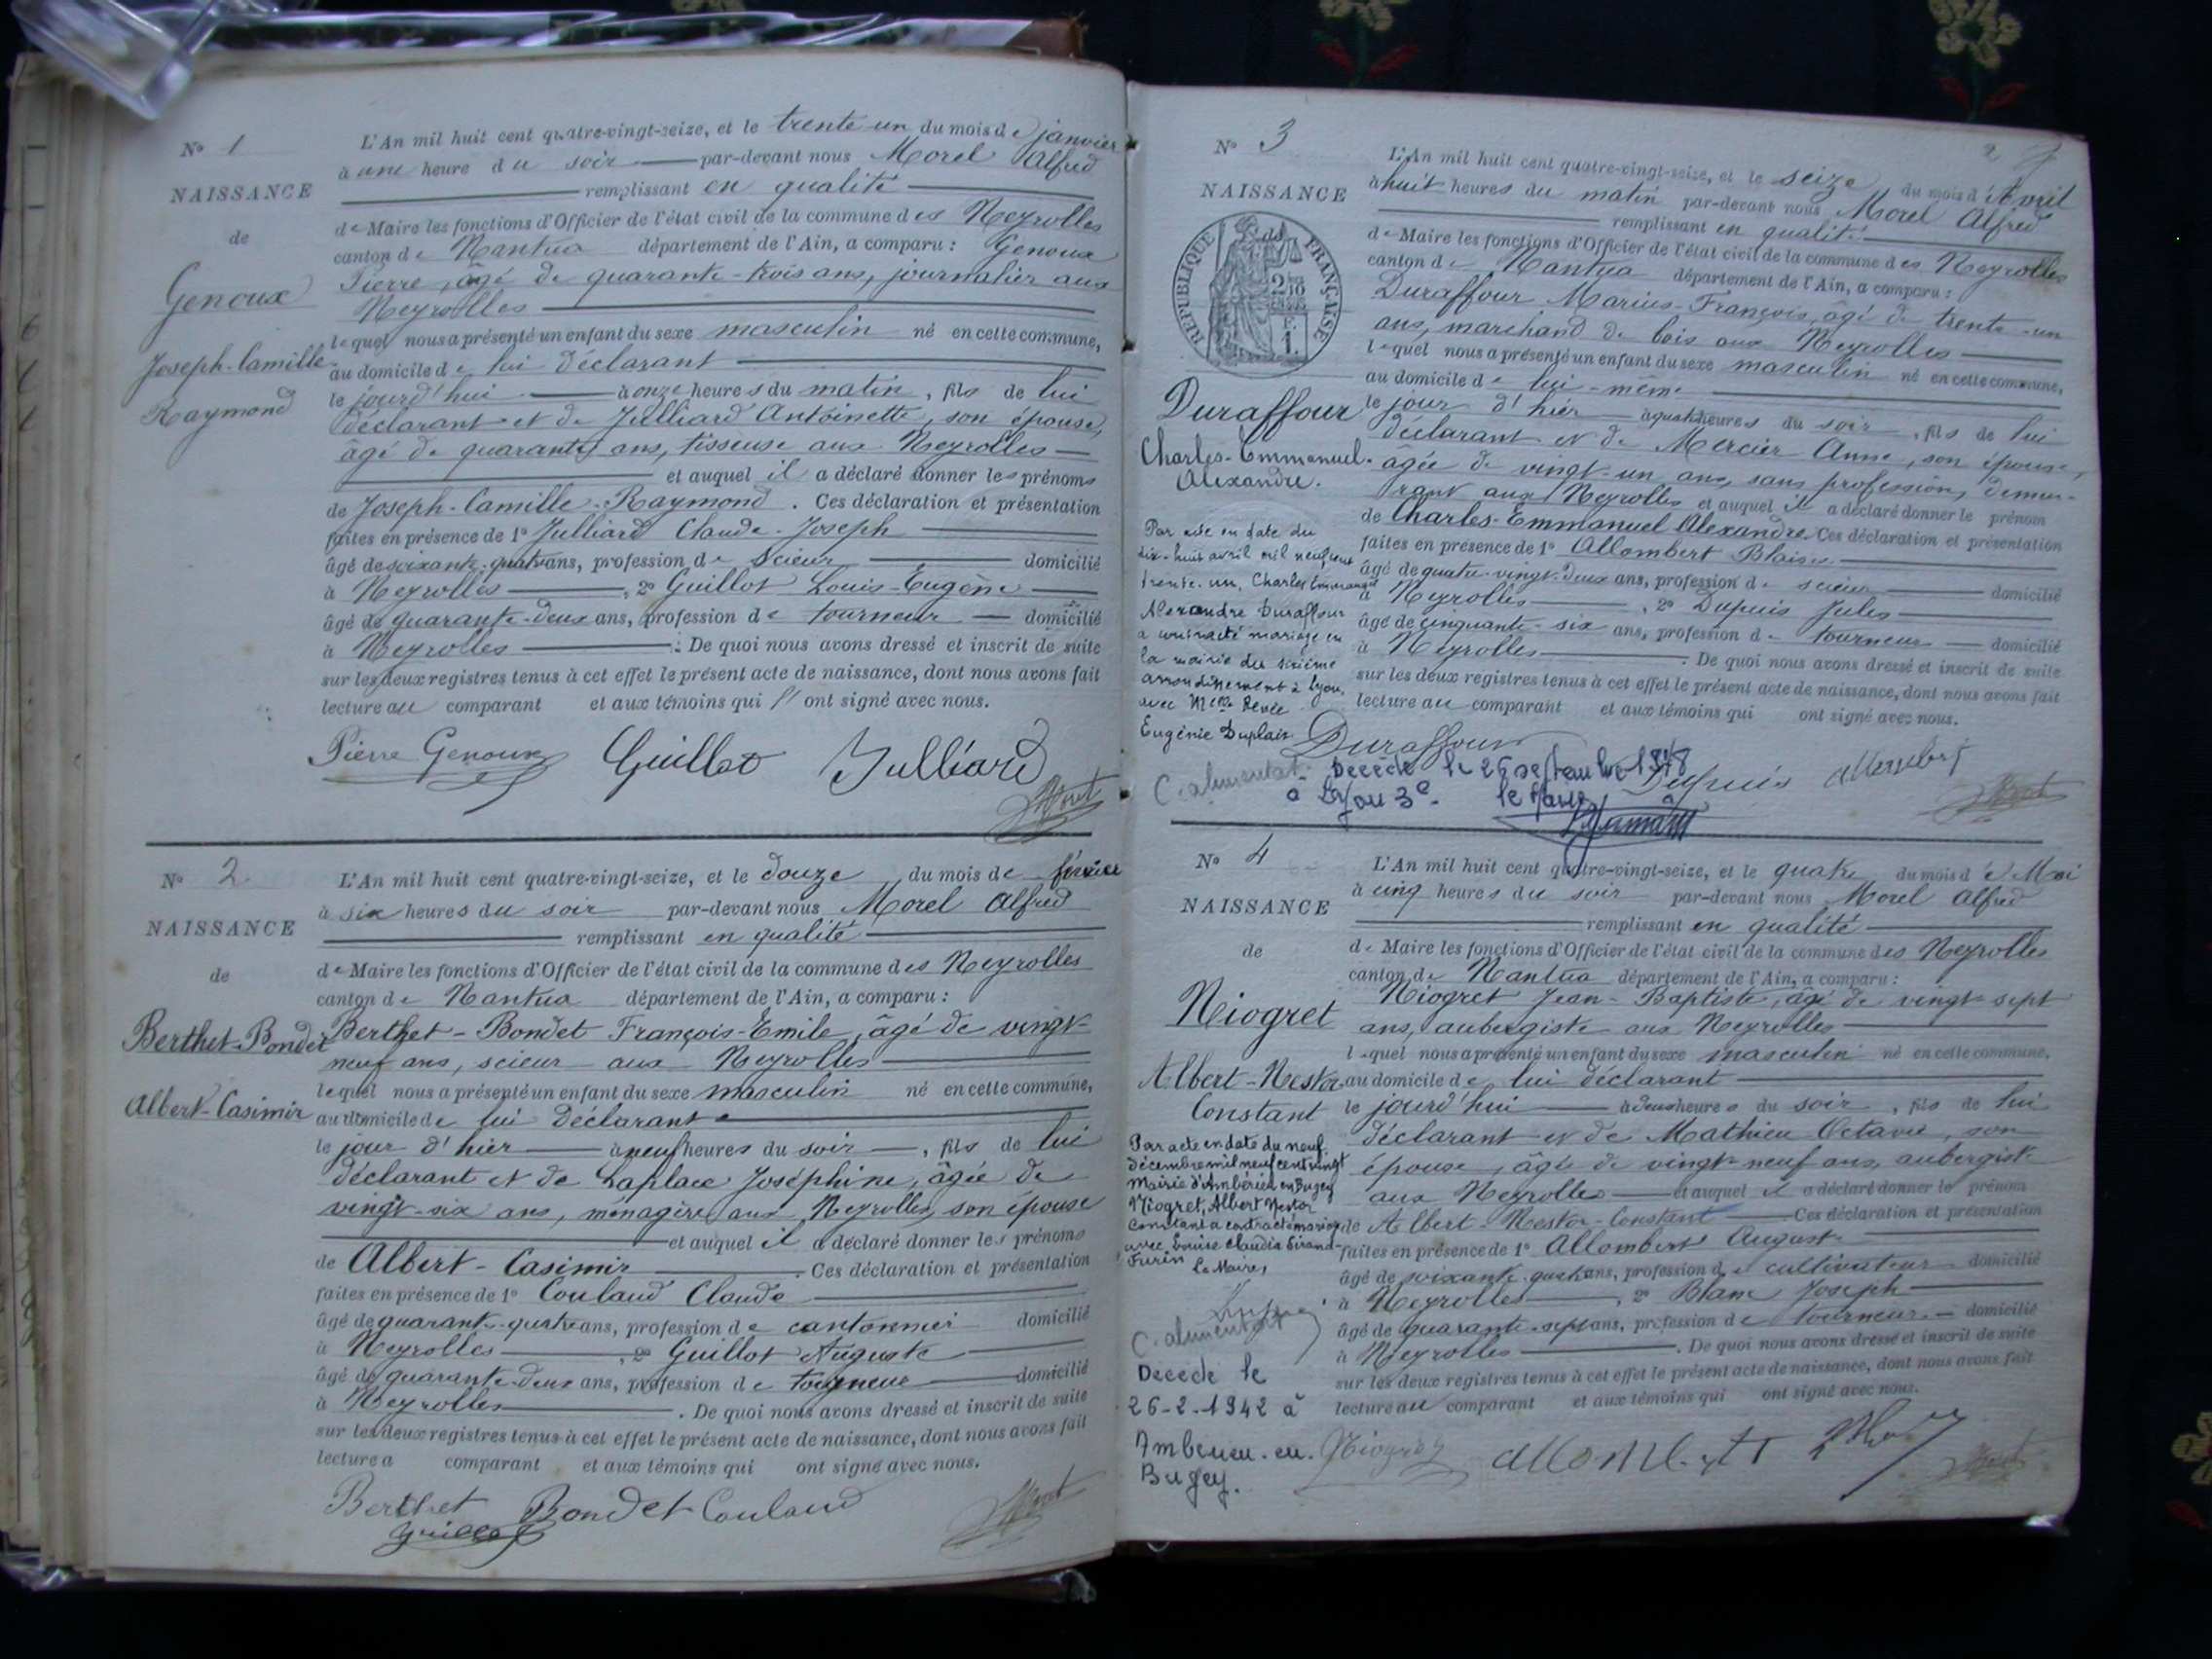 N° 1
NAISSANCE
de
Genoux
Joseph-Camille
Raymond
L'An mil huit cent quatre-vingt-seize, et le trente-un du mois de janvier
à une heure du soir par-devant nous Morel Alfred
remplissant en qualité
de Maire les fonctions d'Officier de l'état civil de la commune des Neyrolles
canton de Nantua département de l'Ain, a comparu : Genoux
Pierre, âgé de quarante-trois ans, journalier aux
Neyrolles
lequel nous a présenté un enfant du sexe masculin né en cette commune,
au domicile de lui déclarant
le jourd'hui à onze heures du matin, fils de lui
déclarant et de Julliard Antoinette, son épouse,
âgé de quarante ans, tisseuse aux Neyrolles
et auquel il a déclaré donner les prénoms
de Joseph-Camille-Raymond. Ces déclaration et présentation
faites en présence de 1° Julliard Claude-Joseph
âgé de soixante-quatre ans, profession de scieur domicilié
à Neyrolles, 2° Guillot Louis-Eugène
âgé de quarante-deux ans, profession de tourneur domicilié
à Neyrolles. De quoi nous avons dressé et inscrit de suite
sur les deux registres tenus à cet effet le présent acte de naissance, dont nous avons fait
lecture au comparant et aux témoins qui ont signé avec nous.
Pierre Genoux Guillot Julliard
Morel
N° 2
NAISSANCE
de
Berthet-Bondet
Albert-Casimir
L'An mil huit cent quatre-vingt-seize, et le douze du mois de février
à six heures du soir par-devant nous Morel Alfred
remplissant en qualité
de Maire les fonctions d'Officier de l'état civil de la commune des Neyrolles
canton de Nantua département de l'Ain, a comparu :
Berthet-Bondet François-Emile, âgé de vingt-
neuf ans, scieur aux Neyrolles
lequel nous a présenté un enfant du sexe masculin né en cette commune,
au domicile de lui déclarant
le jour d'hier à neuf heures du soir, fils de lui
déclarant et de Laplace Joséphine, âgée de
vingt-six ans, ménagère aux Neyrolles, son épouse
et auquel il a déclaré donner les prénoms
de Albert-Casimir. Ces déclaration et présentation
faites en présence de 1° Couland Claude
âgé de quarante-quatre ans, profession de cantonnier domicilié
à Neyrolles, 2° Guillot Auguste
âgé de quarante-deux ans, profession de tourneur domicilié
à Neyrolles. De quoi nous avons dressé et inscrit de suite
sur les deux registres tenus à cet effet le présent acte de naissance, dont nous avons fait
lecture a comparant et aux témoins qui ont signé avec nous.
Berthet Bondet Couland
Guillot Morel
N° 3
NAISSANCE
de
REPUBLIQUE FRANÇAISE
Duraffour
Charles-Emmanuel-
Alexandre.
Par acte en date du
dix-huit avril mil neuf cent
trente-un, Charles Emmanuel
Alexandre Duraffour
a contracté mariage en
la mairie du sixième
arrondissement à Lyon,
avec Melle Renée
Eugénie Duplais
C. alimentat.
L'An mil huit cent quatre-vingt-seize, et le seize du mois d'Avril
à huit heures du matin par-devant nous Morel Alfred
remplissant en qualité
de Maire les fonctions d'Officier de l'état civil de la commune des Neyrolles
canton de Nantua département de l'Ain, a comparu :
Duraffour Marius-François, âgé de trente-un
ans, marchand de bois aux Neyrolles
lequel nous a présenté un enfant du sexe masculin né en cette commune,
au domicile de lui-même
le jour d'hier à quatre heures du soir, fils de lui
déclarant et de Mercier Anne, son épouse,
âgée de vingt-un ans, sans profession, demeu-
rant aux Neyrolles et auquel il a déclaré donner le prénom
de Charles-Emmanuel Alexandre. Ces déclaration et présentation
faites en présence de 1° Allombert Blaise
âgé de quatre-vingt-deux ans, profession de scieur domicilié
à Neyrolles, 2° Dupuis Jules
âgé de cinquante-six ans, profession de tourneur domicilié
à Neyrolles. De quoi nous avons dressé et inscrit de suite
sur les deux registres tenus à cet effet le présent acte de naissance, dont nous avons fait
lecture au comparant et aux témoins qui ont signé avec nous.
Duraffour
Décédé le 26 septembre
à Lyon 3e. le Maire
Dupuis Allombert
Morel
N° 4
NAISSANCE
de
Niogret
Albert-Nestor
Constant
Par acte en date du neuf
décembre mil neuf cent vingt
Mairie d'Ambérieu en Bugey
Niogret, Albert Nestor
Constant a contracté mariage
avec Louise Claudia Sirand-
Furin
Le Maire,
C. alimentat.
Décédé le
26-2-1942 à
Amberieu-en-
Bugey.
L'An mil huit cent quatre-vingt-seize, et le quatre du mois de Mai
à cinq heures du soir par-devant nous Morel Alfred
remplissant en qualité
de Maire les fonctions d'Officier de l'état civil de la commune des Neyrolles
canton de Nantua département de l'Ain, a comparu :
Niogret Jean-Baptiste, âgé de vingt-sept
ans, aubergiste aux Neyrolles
lequel nous a présenté un enfant du sexe masculin né en cette commune,
au domicile de lui déclarant
le jourd'hui à deux heures du soir, fils de lui
déclarant et de Mathieu Octavie, son
épouse, âgée de vingt-neuf ans, aubergiste
aux Neyrolles et auquel il a déclaré donner le prénom
de Albert-Nestor-Constant Ces déclaration et présentation
faites en présence de 1° Allombert Auguste
âgé de soixante-quatre ans, profession de cultivateur domicilié
à Neyrolles, 2° Blanc Joseph
âgé de quarante-sept ans, profession de tourneur domicilié
à Neyrolles. De quoi nous avons dressé et inscrit de suite
sur les deux registres tenus à cet effet le présent acte de naissance, dont nous avons fait
lecture au comparant et aux témoins qui ont signé avec nous.
Niogret Allombert Morel